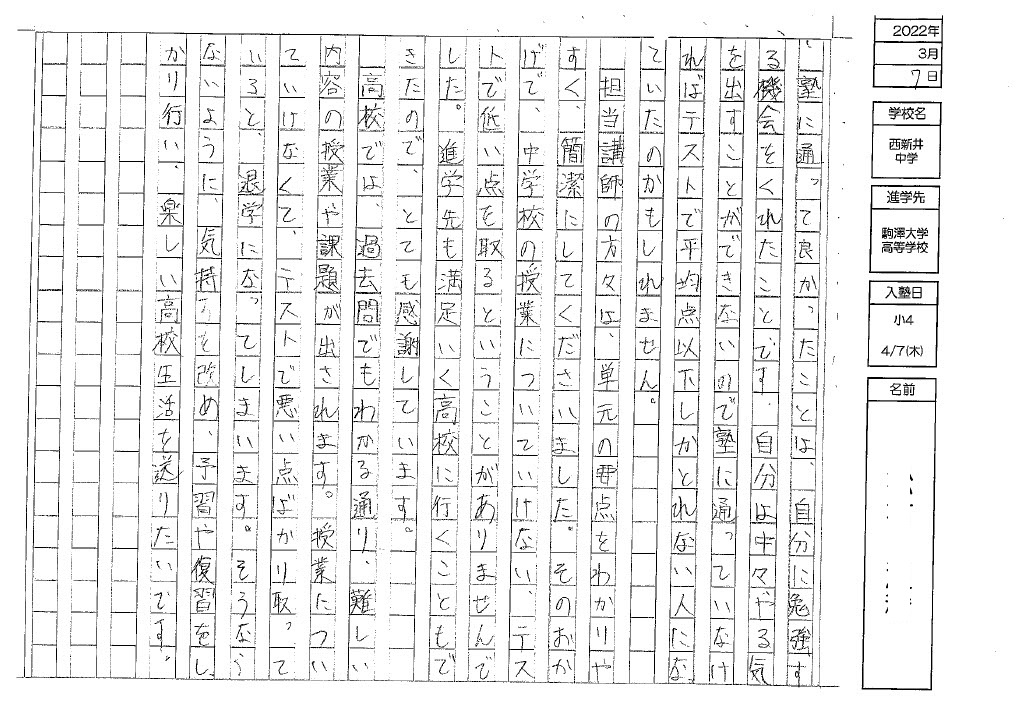 2022年
3月
7日
学校名
西新井
中学
進学先
駒澤大学
高等学校
入塾日
小4
4/7(木)
名前
塾に通って良かったことは、自分に勉強す
る機会をくれたことです。自分は中々やる気
を出すことができないので塾に通っていなけ
ればテストで平均点以下しかとれない人にな
っていたのかもしれません。
担当講師の方々は、単元の要点をわかりや
すく、簡潔にしてくださいました。そのおか
げで、中学校の授業についていけない、テス
トで低い点を取るということがありませんで
した。進学先も満足いく高校に行くこともで
きたので、とても感謝しています。
高校では、過去問でもわかる通り、難しい
内容の授業や課題が出されます。授業につい
ていけなくて、テストで悪い点ばかり取って
いると、退学になってしまいます。そうなら
ないように、気持ちを改め、予習や復習をし
かり行い、楽しい高校生活を送りたいです。